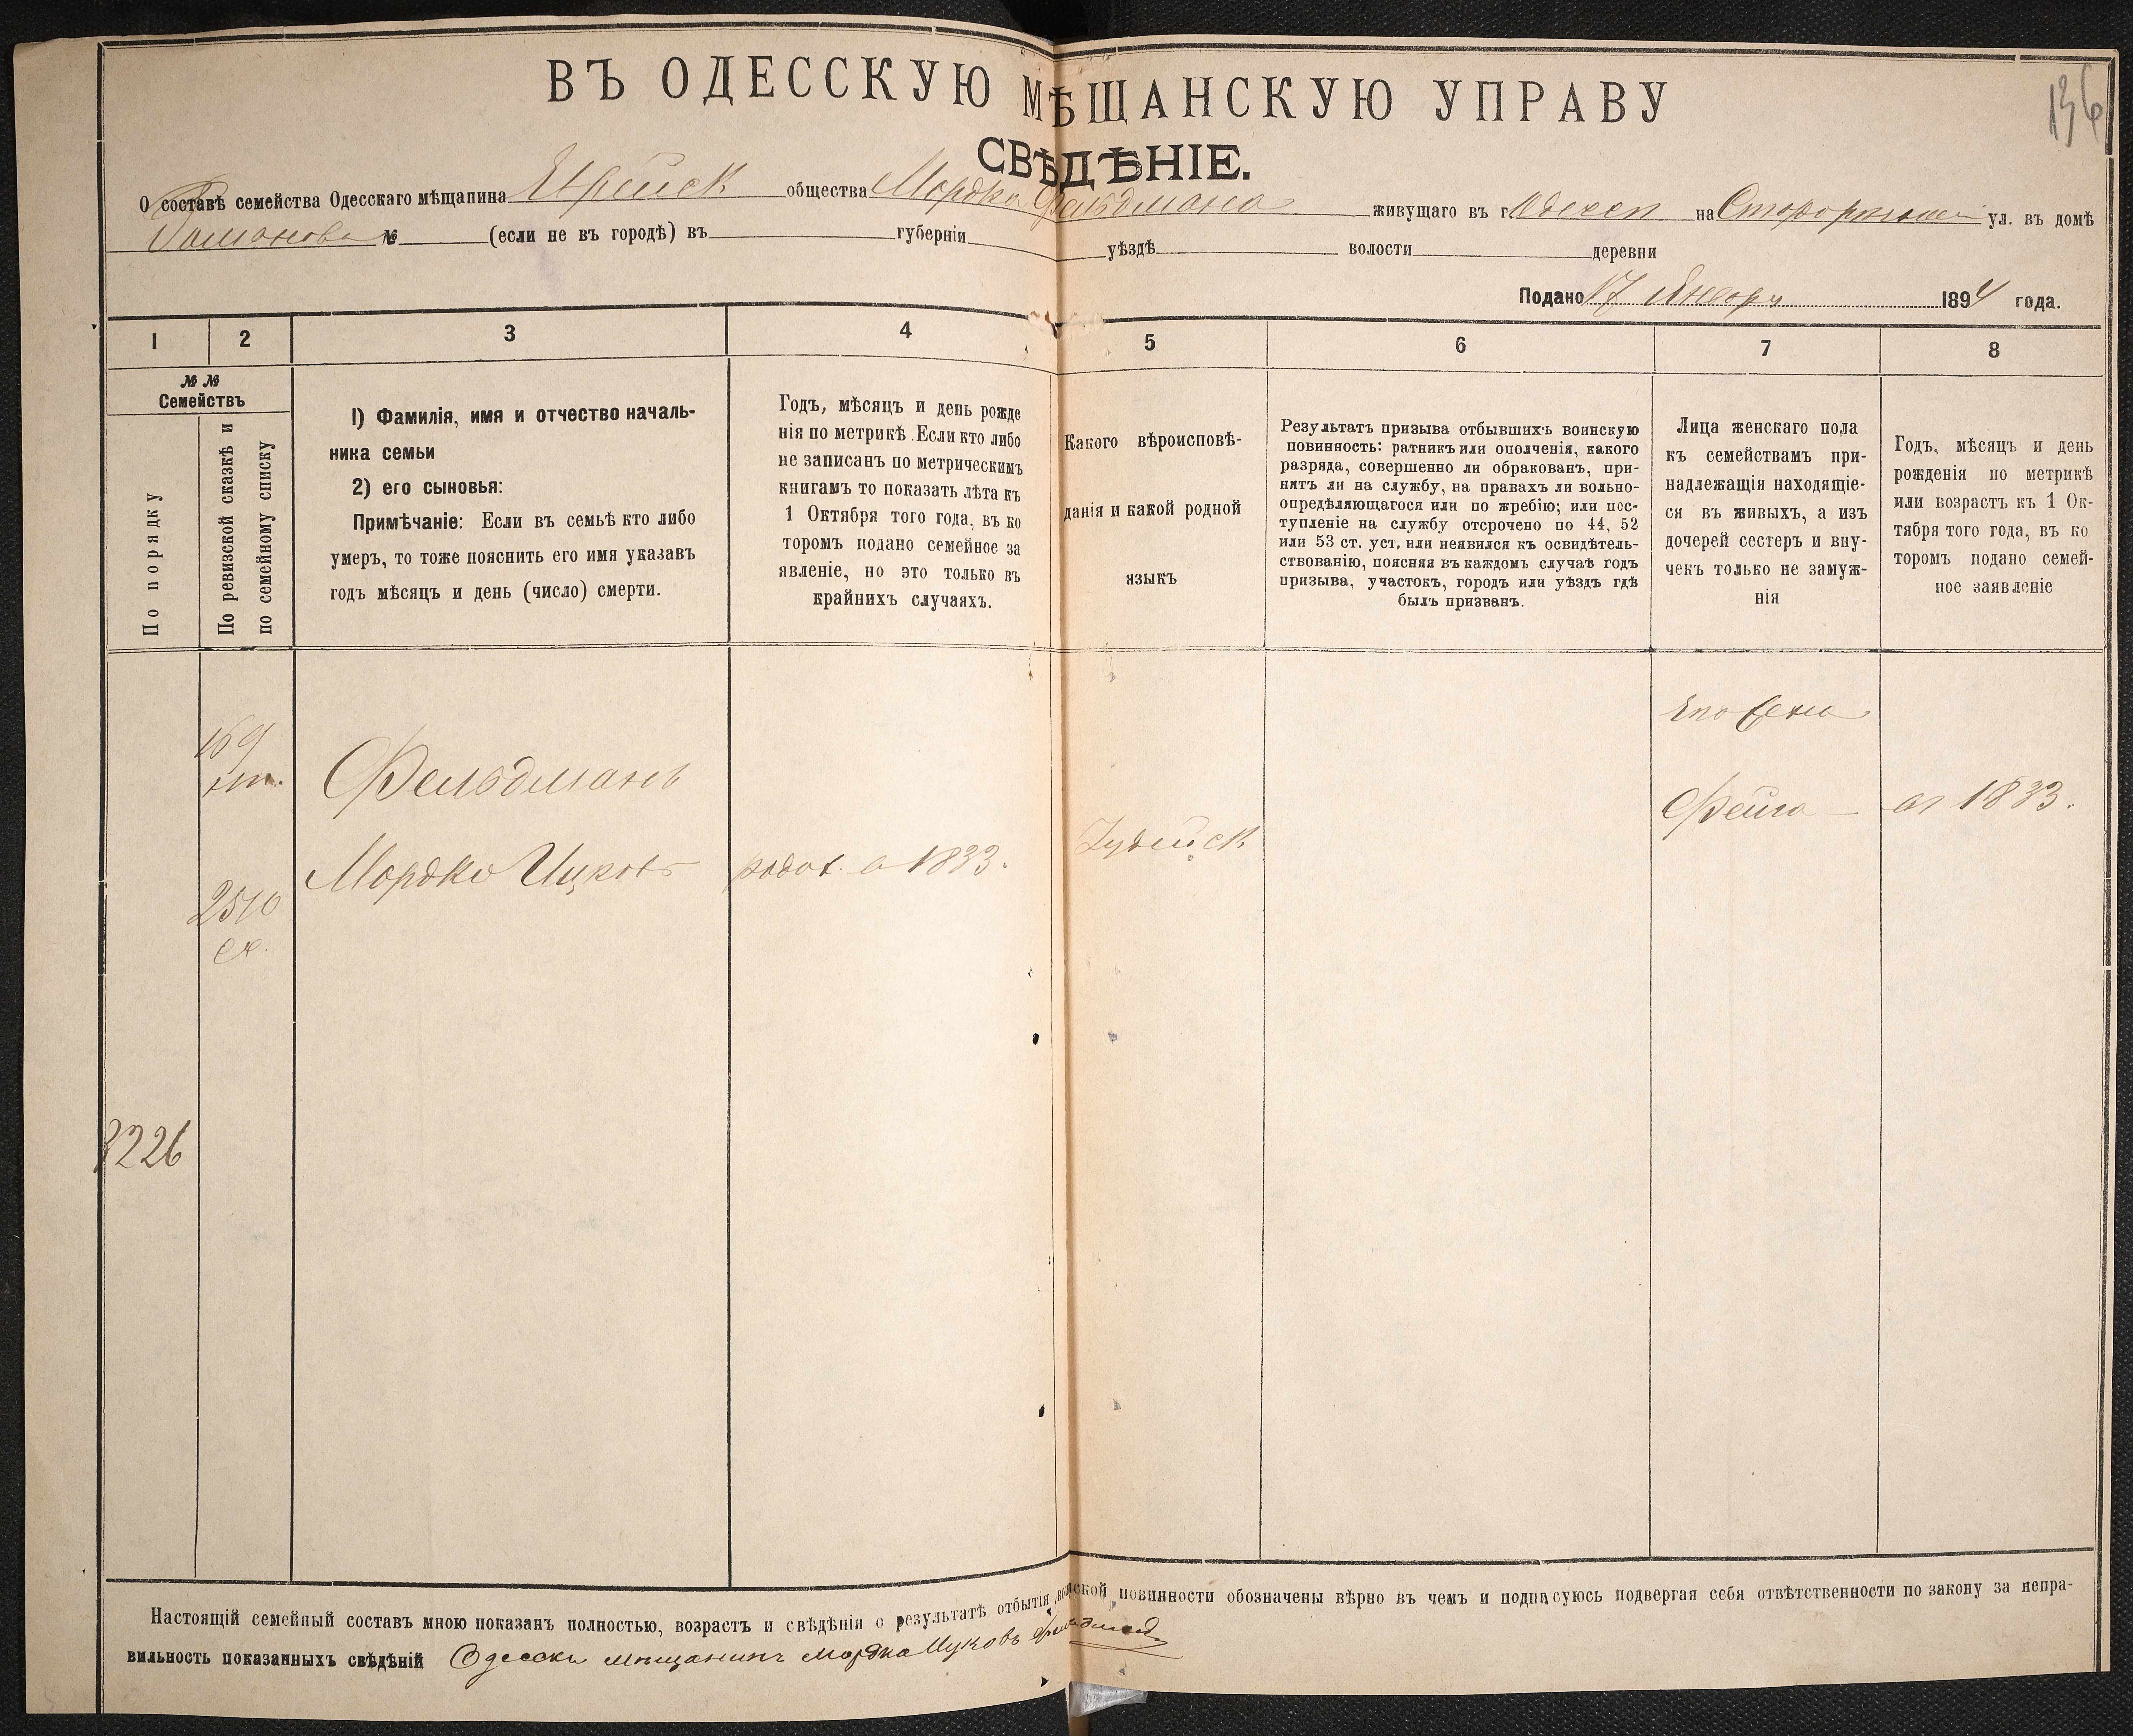 136
ВЪ ОДЕССКУЮ МѢЩАНСКУЮ УПРАВУ
СВѢДѢНІЕ.
О составѣ семейства Одесскаго мѣщанина Еврейск общества Мордка Фельдмана живущаго въ г. Одессѣ на ул. въ домѣ
Романова № (если не въ городѣ) въ губерніи уѣздѣ волости деревни
Подано 17 Января 1894 года.
1 2 3 4 5 6 7 8
№ №
Семействъ
По порядку
По ревизской сказкѣ и
по семейному списку
1) Фамилія, имя и отчество началь-
ника семьи
2) его сыновья:
Примѣчаніе: Если въ семьѣ кто либо
умеръ, то тоже пояснить его имя указавъ
годъ мѣсяцъ и день (число) смерти.
Годъ, мѣсяцъ и день рожде
нія по метрикѣ. Если кто либо
не записанъ по метрическимъ
книгамъ то показать лѣта къ
1 Октября того года, въ ко
торомъ подано семейное за
явленіе, но это только въ
крайнихъ случаяхъ.
Какого вѣроисповѣ-
данія и какой родной
языкъ
Результатъ призыва отбывшихъ воинскую
повинность: ратникъ или ополченія, какого
разряда, совершенно ли обракованъ, при-
нятъ ли на службу, на правахъ ли вольно-
опредѣляющагося или по жребію; или пос-
тупленіе на службу отсрочено по 44, 52
или 53 ст. уст. или неявился къ освидѣтель-
ствованію, поясняя въ каждомъ случаѣ годъ
призыва, участокъ, городъ или уѣздъ гдѣ
былъ призванъ.
Лица женскаго пола
къ семействамъ при-
надлежащія находящіе-
ся въ живыхъ, а изъ
дочерей сестеръ и вну-
чекъ только не замуж-
нія
Годъ, мѣсяцъ и день
рожденія по метрикѣ
или возрастъ къ 1 Ок-
тября того года, въ ко
торомъ подано семей-
ное заявленіе
его жена
169
Фельдманъ
Фейга в 1833.
Мордко Ицковъ родов. в 1833. Іудейск
2510
3226
Настоящій семейный составъ мною показанъ полностью, возрастъ и свѣдѣнія о результатѣ отбытія воинской повинности обозначены вѣрно въ чемъ и подписуюсь подвергая себя отвѣтственности по закону за непра-
вильность показанныхъ свѣдѣній Одесски мѣщанинъ Мордка Ицковъ Фельдман